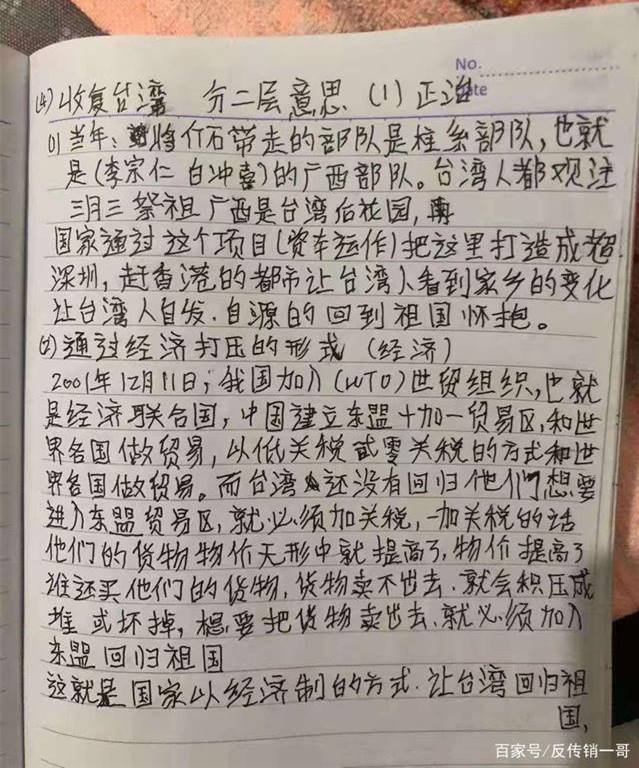 No.
Date
(4) 收复台湾 分二层意思 (1) 正治
(1) 当年: 蒋介石带走的部队是桂系部队, 也就
是(李宗仁 白冲喜)的广西部队。台湾人都观注
三月三祭祖 广西是台湾后花园,
国家通过这个项目(资车运作)把这里打造成超
深圳, 赶香港的都市让台湾人看到家乡的变化
让台湾人自发. 自源的回到祖国怀抱。
(2) 通过经济打压的形式 (经济)
2001年12月11日; 我国加入(WTO)世贸组织, 也就
是经济联合国, 中国建立东盟十加一贸易区, 和世
界各国做贸易, 以低关税或零关税的方式和世
界各国做贸易。而台湾还没有回归他们想要
进入东盟贸易区, 就必须加关税, 一加关税的话
他们的货物物价无形中就提高了, 物价提高了
谁还买他们的货物, 货物卖不出去. 就会积压成
堆 或坏掉, 想要把货物卖出去. 就必须加入
东盟回归祖国
这就是国家以经济制的方式. 让台湾回归祖
国,
百家号/反传销一哥